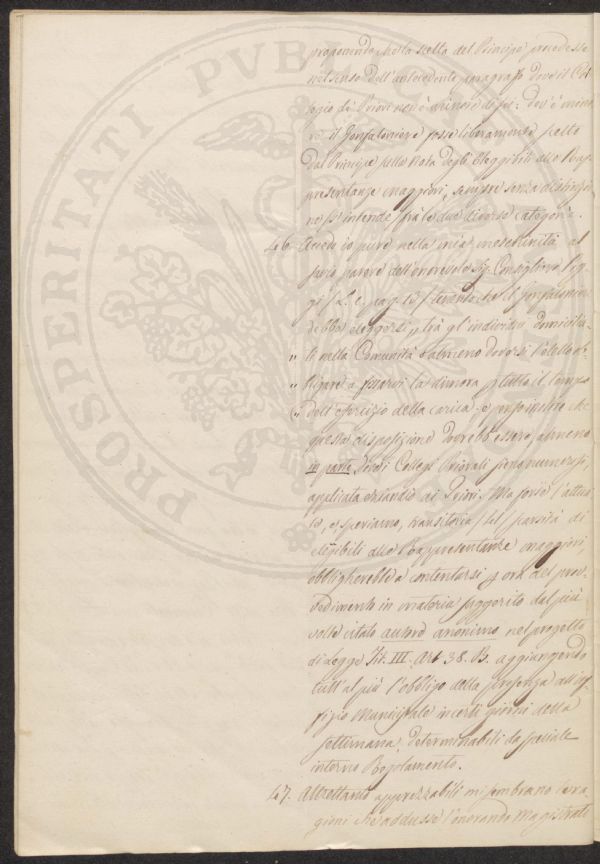 proponendo che la scelta del Principe procedesse
nel senso dell'antecedente paragrafo dove il Col
legio di Priori non è minore di sei: dov'è mino
re il Gonfaloniere fosse liberamente scelto
dal Principe sulla Nota degli Eleggibili alle Rap
presentanze maggiori, sempre senza distinzio
ne s'intende fra le due diverse categorie.
46. Anch'io pure nella mia meschinità al
pari parere dell'onorevole Sig. Consigliere
(L. c. pag. 13) che il Gonfaloniere
debba eleggersi trà gl'individui domicilia
" ti nella Comunità o almeno doversi l'eletto ob
" bligare a fissarvi la dimora p tutto il tempo
(" dell'esercizio della carica e che
questa disposizione dovrebb'essere, almeno
in parte dove i Collegi Priorali sieno numerosi,
applicata eziandio ai Priori. Ma forse l'attua
le, e, speriamo, transitoria scarsità di
eligibili alle Rappresentanze maggiori,
obbligherebbe a contentarsi p ora del prov
vedimento in materia suggerito dal più
volte citato autore anonimo nel progetto
di Legge Tit. III. Art. 38. B. aggiungendo
tutt'al più l'obbligo della presenza all'Uf
fizio Municipale in certi giorni della
settimana, determinabili da speciale
interno Regolamento.
47. Altrettanto apprezzabili mi sembrano le ra
gioni che addusse l'onorando Magistrato
PROSPERITATI PVBLICAE